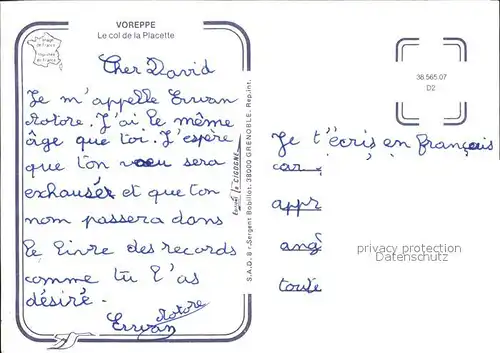 VOREPPE
Le col de la Placette
Image de France
Cher David
Je m'appelle Erwan
Rotore. J'ai le même
âge que toi. J'espère
que ton voeu sera
exhausér et que ton
nom passera dans
le livre des records
comme tu l'as
désiré.
Rotore
Erwan
LA CIGOGNE
S.A.D. 8 r. Sergent Bobillot. 38000 GRENOBLE. Rep. int.
38.565.07
D2
Je t'écris en français
car
appr
ang
toute
privacy protection
Datenschutz